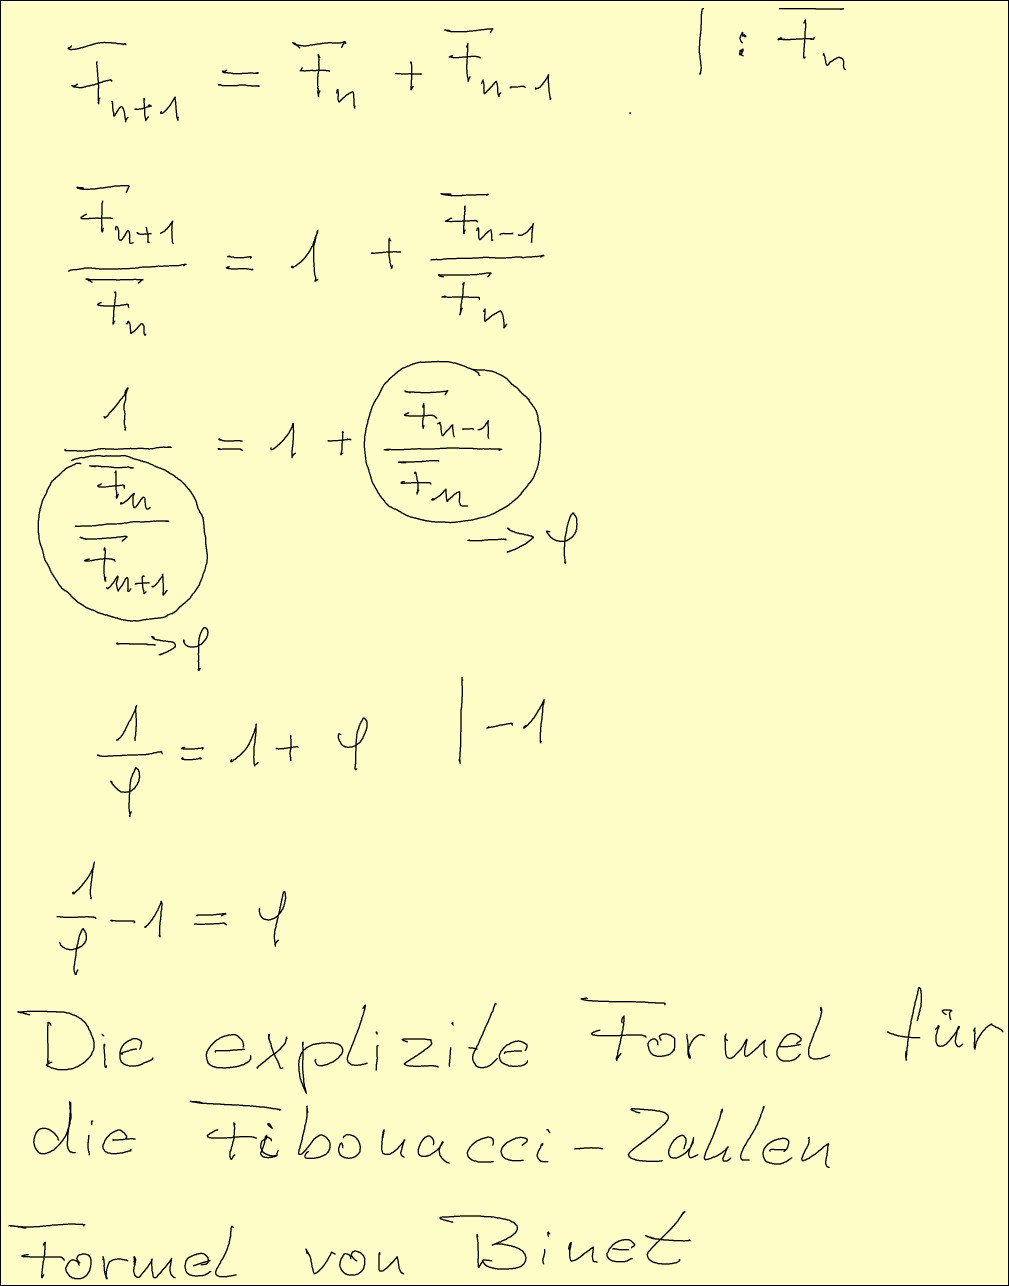 F_{n+1} = F_n + F_{n-1} | : F_n
F_{n+1}/F_n = 1 + F_{n-1}/F_n
1/(F_n/F_{n+1}) = 1 + F_{n-1}/F_n
→ φ
→ φ
1/φ = 1 + φ | -1
1/φ - 1 = φ
Die explizite Formel für
die Fibonacci-Zahlen
Formel von Binet